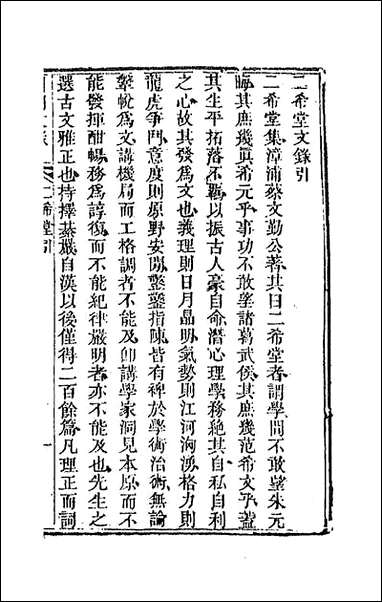 二希堂文錄引
二希堂集漳浦蔡文勤公著其曰二希堂者謂學問不敢望朱元
晦其庶幾眞希元乎事功不敢望諸葛武侯其庶幾范希文乎蓋
其生平拓落不羈以振古人豪自命潛心理學務絕其自私自利
之心故其發爲文也義理則日月晶明氣勢則江河洶湧格力則
龍虎爭鬥意度則原野安閒鑿鑿指陳皆有裨於學術治術無論
鞶帨爲文講機局而工格調者不能及卽講學家洞見本原而不
能發揮酣暢務爲諄復而不能紀律嚴明者亦不能及也先生之
選古文雅正也持擇綦嚴自漢以後僅得二百餘篇凡理正而詞
二希堂引
一